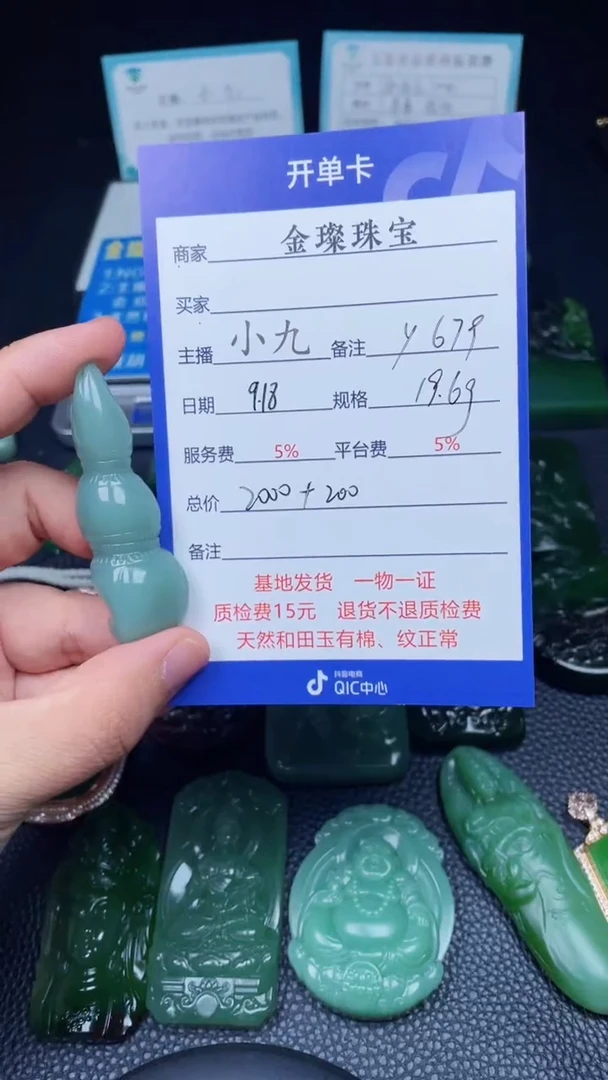 开单卡
商家 金璨珠宝
买家
主播 小九 备注 y679
日期 9.18 规格 19.6g
服务费 5% 平台费 5%
总价 2000+200
备注
基地发货 一物一证
质检费15元 退货不退质检费
天然和田玉有棉、纹正常
抖音电商
QIC中心